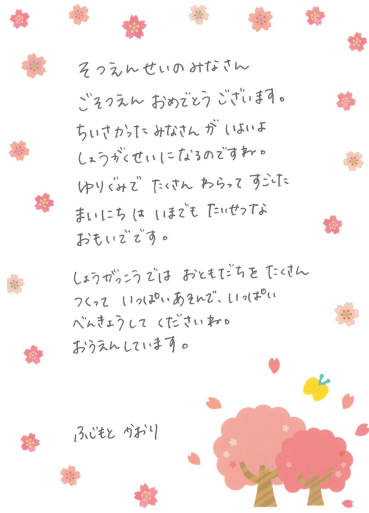 そつえんせいのみなさん
ごそつえん おめでとう ございます。
ちいさかった みなさん が いよいよ
しょうがくせい に なるのですね。
ゆりぐみで たくさん わらって すごした
まいにち は いまでも たいせつな
おもいで です。
しょうがっこう では おともだち を たくさん
つくって いっぱい あそんで、いっぱい
べんきょう して くださいね。
おうえんしています。
ふじもと かおり